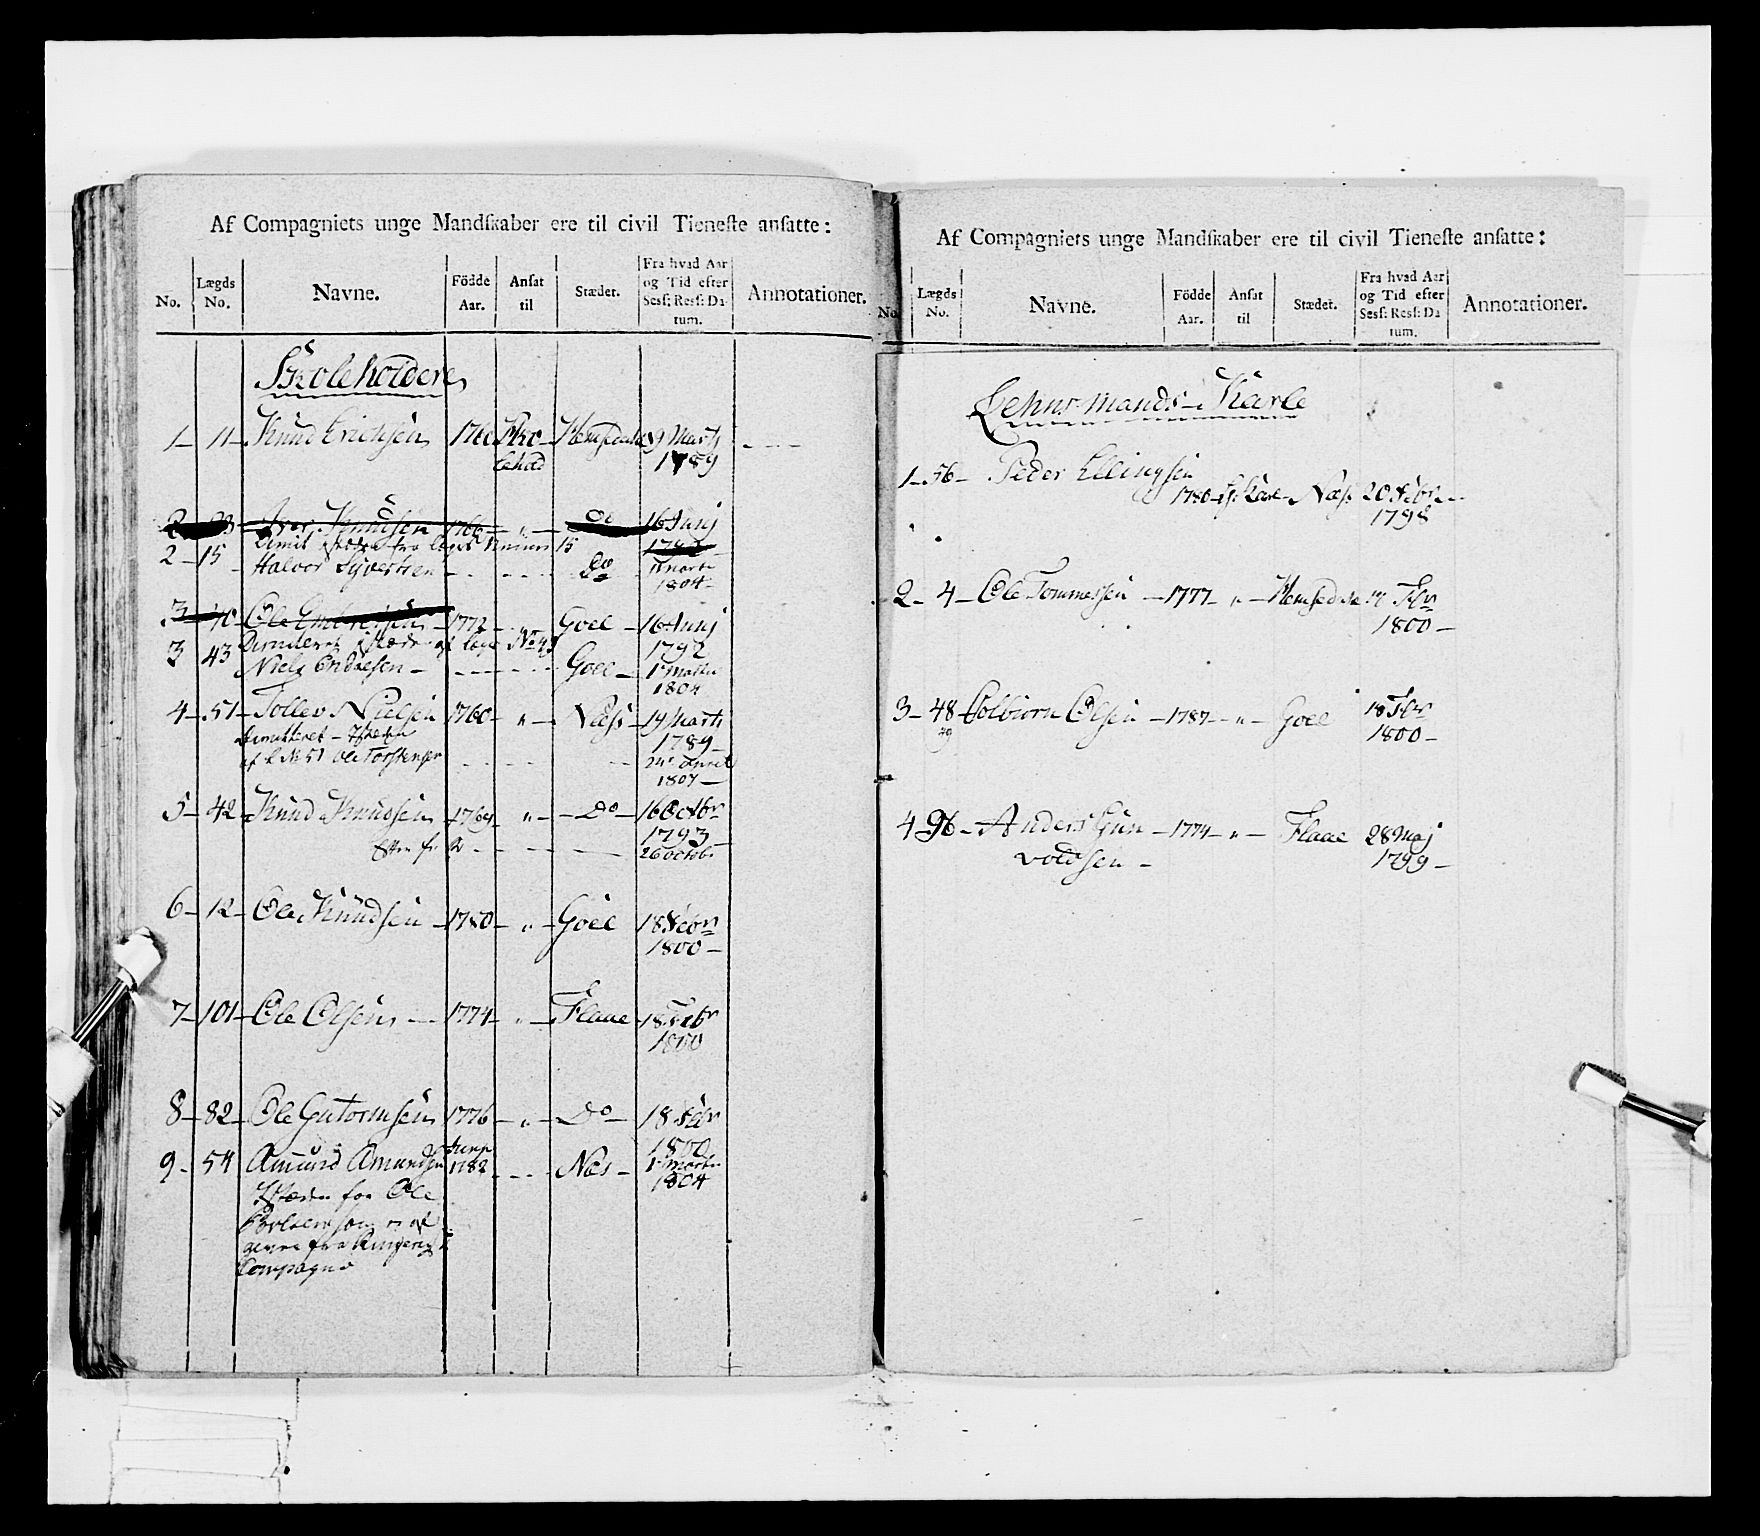 Af Compagniets unge Mandskaber ere til civil Tieneste ansatte:
No. Lægds No. Navne. Födde Aar. Ansat til Stædet. Fra hvad Aar og Tid efter Sess: Ress: Datum. Annotationer.
Skoleholdere
1 - 11 - Knud Erichsen 1760 Sko- Hemsedahl 9 Marti
lehold 1789
2 23 - Iver Knudsen 1766 - " - do 16 Junj
1792
2 - 15 Halvor Syversen - - - do 1 Martii
1804 -
3 - 40 Ole Embrichsen 1772 - " - Goel - 16 Junj
1792
3 43 Niels Endresen - - - - Goel - 1 Martii
1804
4 - 51 - Tollev Nielsen 1760 - " - Næss - 19 Marti
Dimitteret - Isteden 1789 -
af L No 51 Ole Torstensen - - - 24 April
1807 -
5 - 42 - Knud Knudsen 1769 - " - Do - 16 Octbr
1793 -
26 octob:
6 - 12 - Ole Knudsen - 1780 - " - Goel 18 Febr
1800 -
7 - 101 - Ole Olsen - 1774 - " - Flaae - 18 Febr
1800
8 - 82 - Ole Gutormsen 1776 - " - Do - 18 Febr
1800
9 - 54 Amund Amundsen 1782 - - - Næs - 1 Martii
1804
Istæden for Ole
Compagnie
Af Compagniets unge Mandskaber ere til civil Tieneste ansatte:
No. Lægds No. Navne. Födde Aar. Ansat til Stædet. Fra hvad Aar og Tid efter Sess: Ress: Datum. Annotationer.
Lehnsmands-Karle
1 - 56 - Peder Ellingsen
1780 - Karl - Næss 20 Febr -
1798
2 - 4 - Ole Tommessen - 1777 - " - Hemsedal 17 Febr
1800 -
3 - 48 Colbiörn Olsen - 1787 - " - Goel 18 Febr
1800 -
4 96 - Anders Gun - 1774 - " - Flaae 28 Maj
voldsen - 1799 -